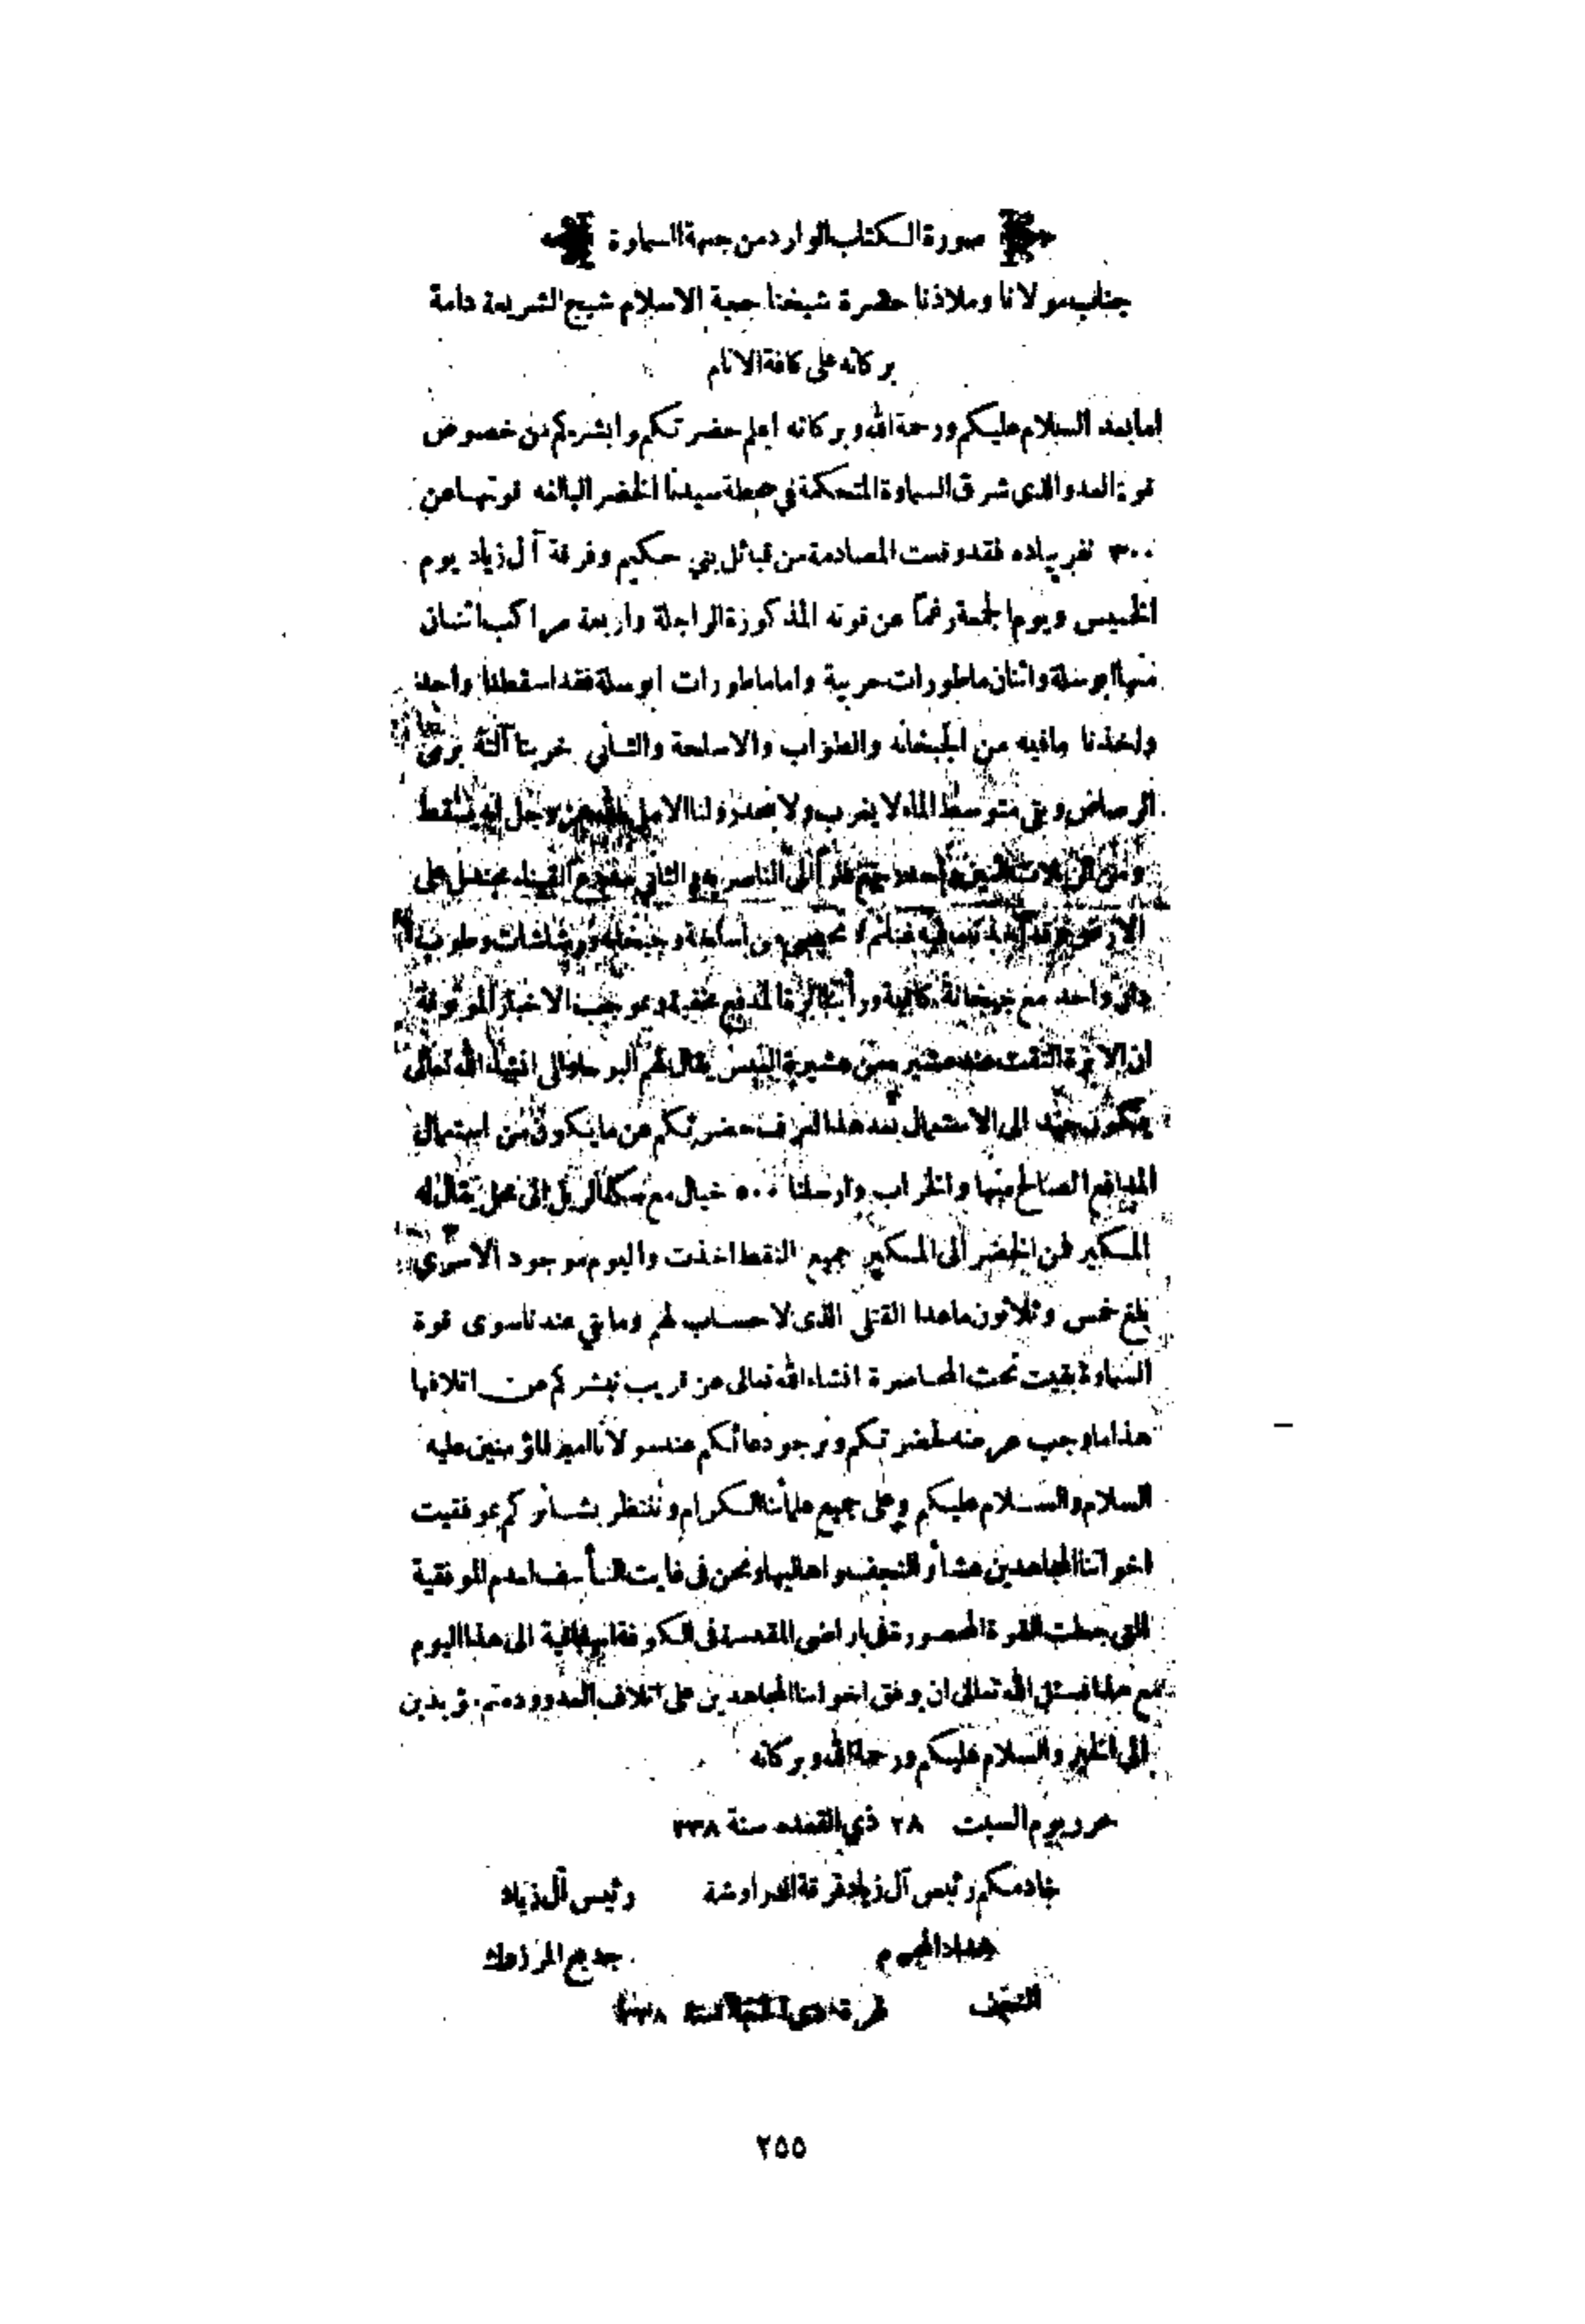 صورة الكتاب الوارد من جهة السماوة
جناب مولانا وملاذنا حضرة شيخنا حجة الاسلام شيخ الشريعة دامة
بركاته على كافة الانام
اما بعد السلام عليكم ورحمة الله وبركاته اعلم حضرتكم وابشركم من خصوص
قوة العدو الذي شرق السماوة المتحكمة في محطة سيدنا الخضر البالغه قوتها عن
٣٠٠ نفر پياده فقد وقعت المصادمة من قبائل بني حكيم وفرقة آل زياد يوم
الخميس ويوم الجمعة رغماً عن قوته المذكورة الراجلة واربعة مراكب اثنان
منها ابو سلة واثنان ماطورات حربية واما ماطورات ابو سلة فقد اسقطنا واحد
واخذنا مافيه من الجبخانه والطواب والاسلحة والثاني خربنا آلتة برمي
الرصاص وبقى متوسط الماء لا يغرب ولا يحدر ولنا الامل بالله عز وجل انه يسقط
الى الناصرية والثاني
الارض وقد فيه غنائم لا تحصى من اسلحة وجبخانه ورشاشات وطوب
واحد مع جبخانة كافية المدفع مخفية وبموجب الاخبار الموثوقة
ان الابرة التقت عند عشير من عشيرة يقال لهم البو انشاء الله تعالى
الى الاستعمال بعد هذا نعرف حضرتكم عن ما يكون من استعمال
المدافع الصالح منها والخراب وارسلنا ٥٠٠ خيال مع سكة الريل الى محل يقال له
المسكير فمن الخضر الى المسكير جميع النقط اخذت واليوم موجود الاسرى
بلغ خمس وثلاثون ماعدا القتلى الذى لا حساب لهم وما بقي عندنا سوى قوة
السماوة بقيت تحت المحاصرة انشاء الله تعالى عن قريب نبشركم عن اتلافها
هذا ما وجب عرضه لحضرتكم ونرجو دعائكم عند مولانا امير المؤمنين عليه
السلام والسلام عليكم وعلى جميع علمائنا الكرام وننتظر بشائركم بموفقيت
اخواننا المجاهدين عشائر النجف واهاليها ونحن فى غايت التأسف لعدم الموفقية
التي جعلت القوة المحصورة في اراضي المقدسة في الكوفة انها باقية الى هذا اليوم
مع هذا فنسئل الله تعالى ان يوفق اخواننا المجاهدين على اتلاف العدو ودمتم مؤيدين
الى الخير والسلام عليكم ورحمة الله وبركاته
حرر يوم السبت ٢٨ ذي القعده سنة ٣٣٨
خادمكم رئيس آل زياد فرقة الدراوشة رئيس آل زياد
جديع المرزوك
النجف غرة ذي الحجة سنة ٣٣٨
٢٥٥